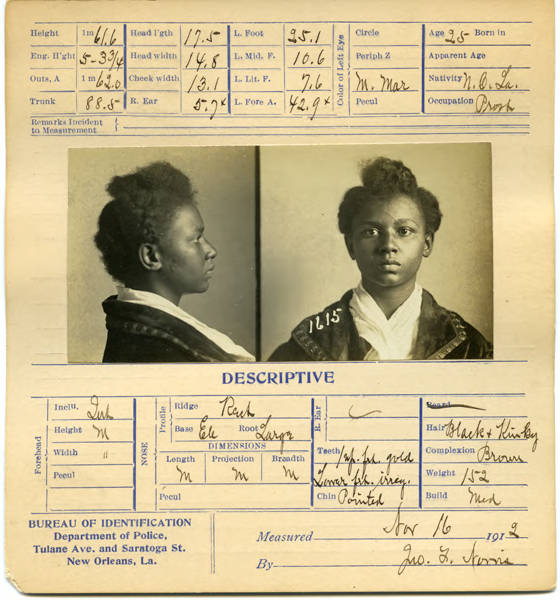 Height 1m 61.6 Head l'gth 17.5 L. Foot 25.1 Circle Age 25 Born in
Eng. H'ght 5-3 3/4 Head width 14.8 L. Mid. F. 10.6 Periph Z Apparent Age
Outs, A 1m 62.0 Cheek width 13.1 L. Lit. F. 7.6 M. Mar Nativity N.O. La.
Trunk 88.5 R. Ear 5.7x L. Fore A. 42.9x Pecul Occupation Prost
Color of Left Eye
Remarks Incident
to Measurement
1615
DESCRIPTIVE
Forehead
Inclu.
Height M
Width "
Pecul
NOSE
Profile
Ridge Rect
Base Ele Root Large
DIMENSIONS
Length Projection Breadth
M M M
Pecul
R. Ear
Teeth Up. frt. gold
Lower frt. irreg.
Chin Pointed
Beard
Hair Black & Kinky
Complexion Brown
Weight 152
Build Med
BUREAU OF IDENTIFICATION
Department of Police,
Tulane Ave. and Saratoga St.
New Orleans, La.
Measured Nov 16 1912
By Jno. F. Norris